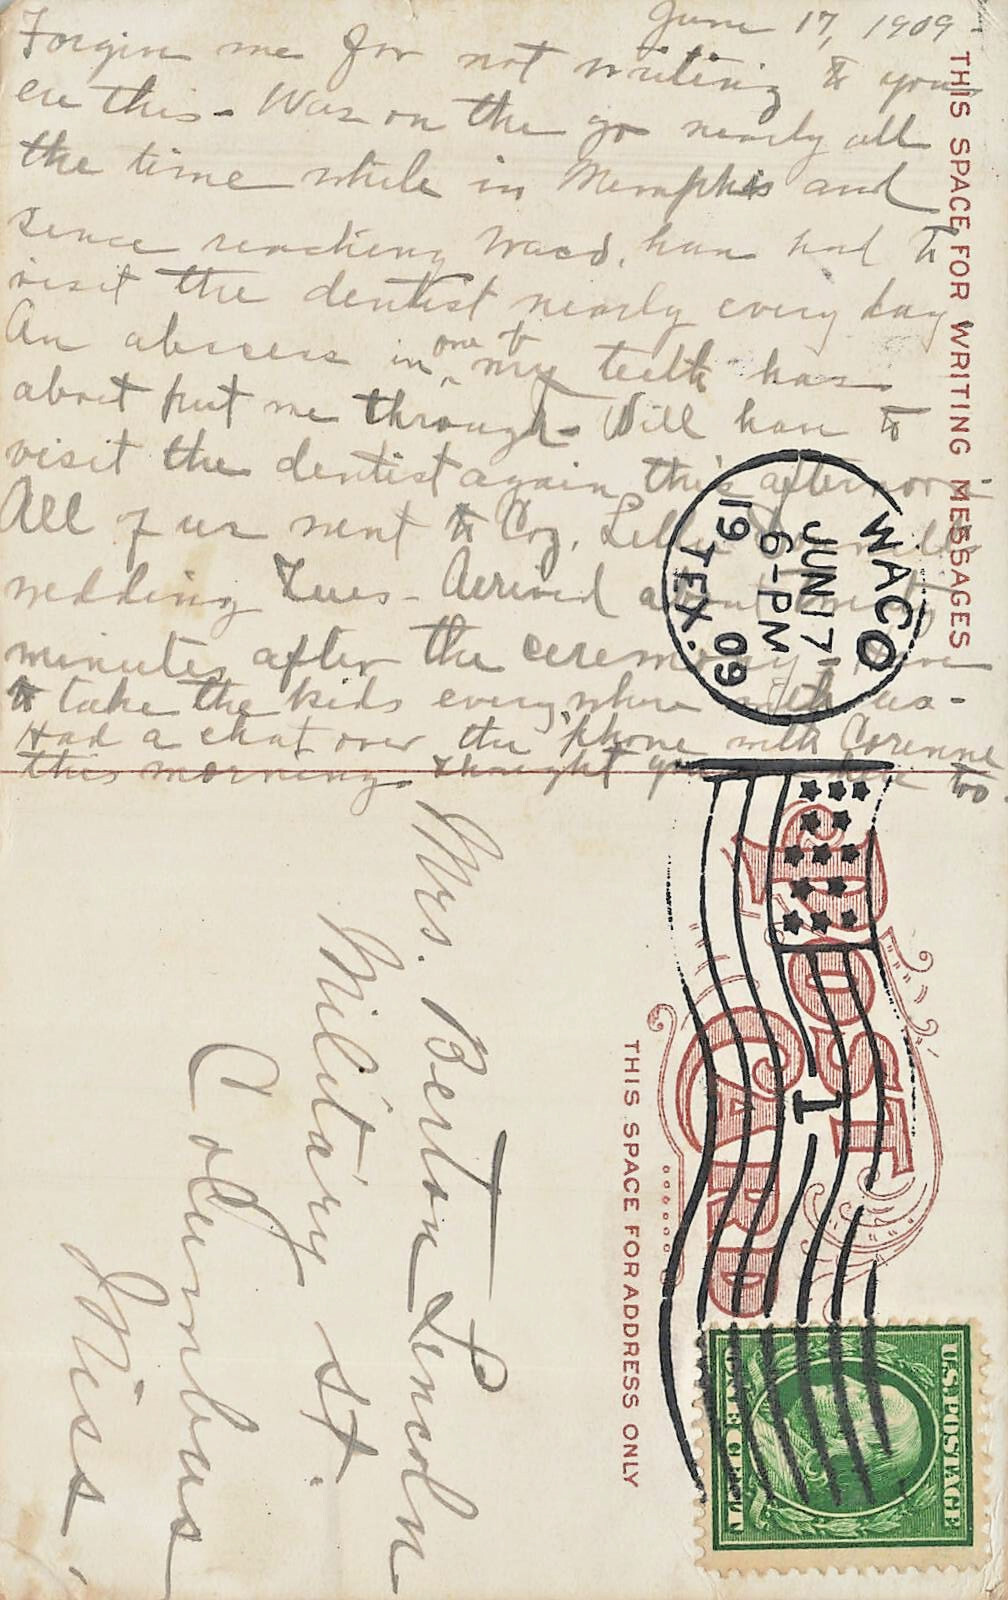 June 17, 1909-
Forgive me for not writing to you
ere this - Was on the go nearly all
the time while in Memphis and
since reaching Waco, have had to
visit the dentist nearly every day
An abscess in one of my teeth has
about put me through - Will have to
visit the dentist again this afternoon -
All of us went to Coz. Lellie
wedding Tues - Arrived about twenty
minutes after the ceremony - Have
to take the kids everywhere with us -
Had a chat over the 'phone with Corinne
this morning. thought you were here too.
THIS SPACE FOR WRITING MESSAGES
WACO
JUN 17
6-PM
19 09
TEX.
POST CARD
1
THIS SPACE FOR ADDRESS ONLY
U.S. POSTAGE
ONE CENT
Mrs. Berton Lincoln
Military St.
Columbus
Miss.